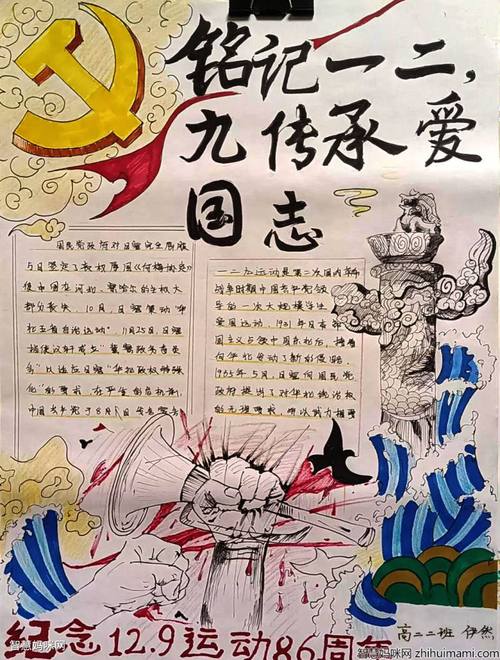 铭记一二,
九传承爱
国志
国民党政府对日寇完全屈服
5月签定了丧权辱国《何梅协定》
使中国在河利、察哈尔的主权大
部分丧失。10月,日寇策动"华
北五省自治运动"。11月25日,日寇
指使汉奸成立"冀
以适应日寇"华北政权特殊
化"的要求。在严重的危机前,
中国共产党于8月1日发表宣言
一二·九运动是第二次国内革命
战争时期中国共产党领
导的一次大规模学生
爱国运动。1931年日本帝
国主义占领中国东北后,接着
向华北发动了新的侵略
1935年5月,日寇向国民党
政府提出了对华北统治权
的无理要求,并以武力相要
纪念12.9运动86周年
高二二班 伊然
智慧妈咪网
智慧妈咪网
zhihuimami.com